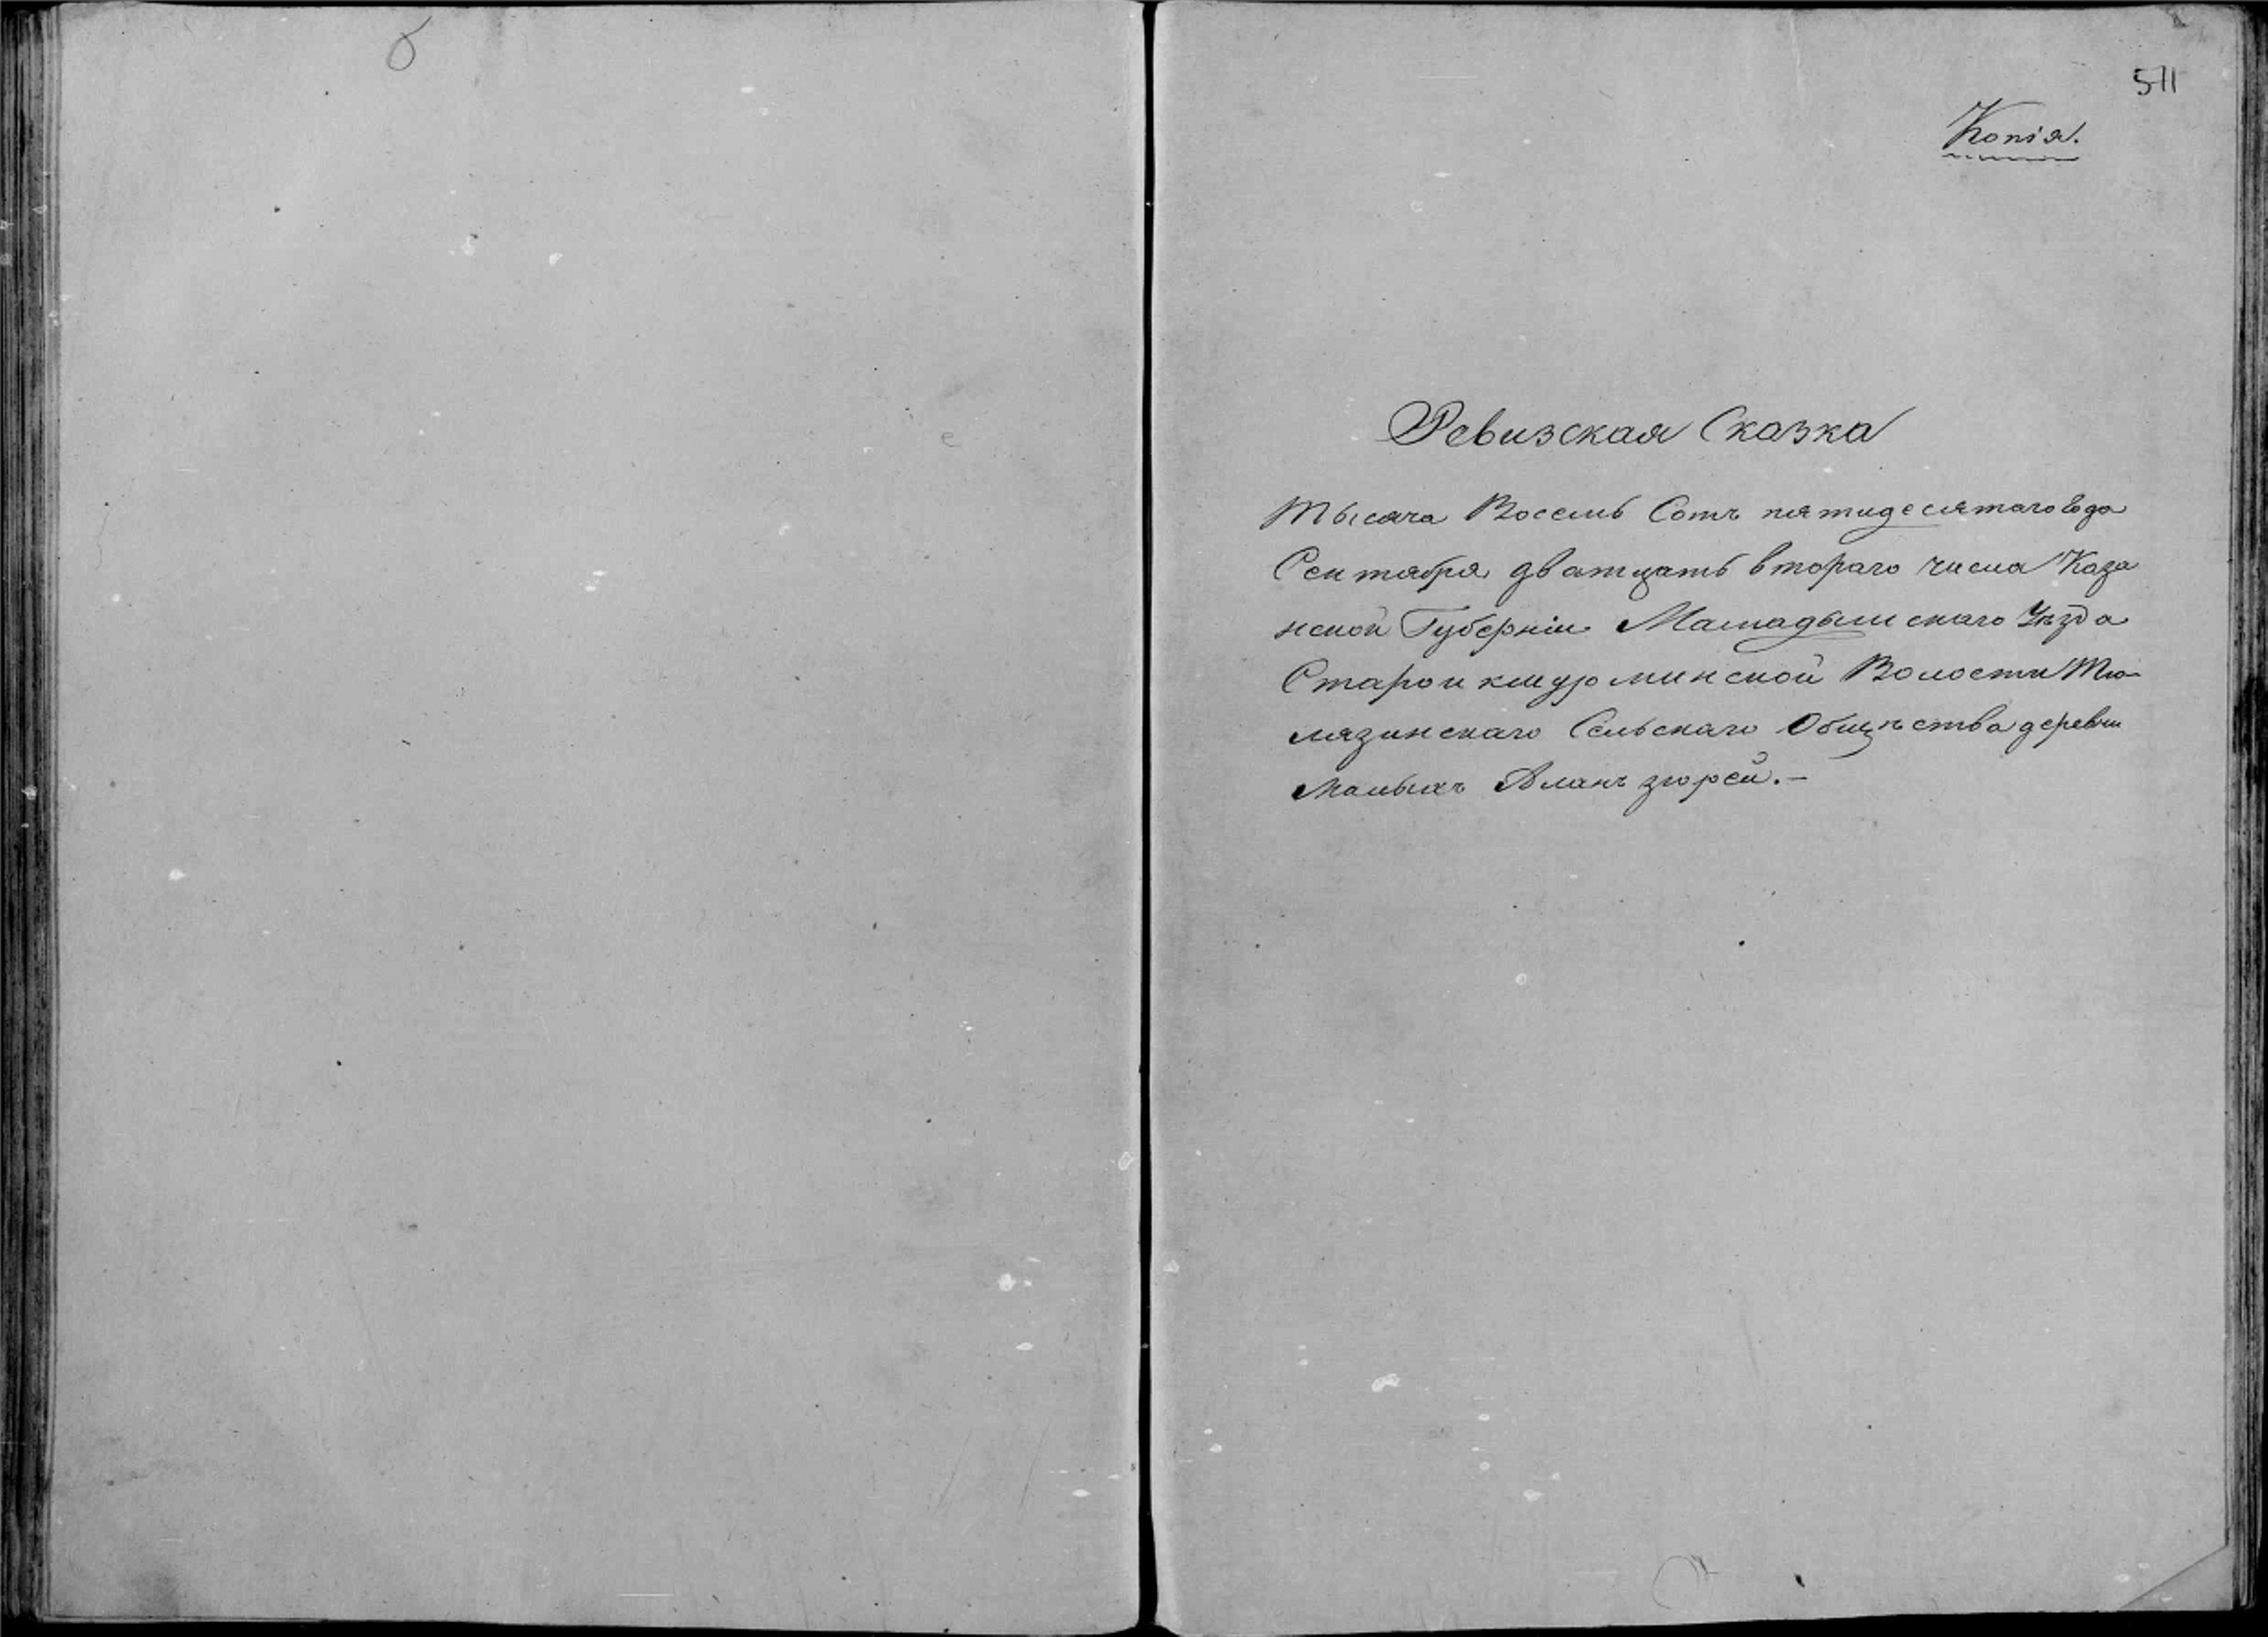 б
511
Копія.
Ревизская Сказка
Тысяча Восемь Сотъ пятидесятаго Года
Сентября дватцать втораго числа Каза
нской Губерніи Мамадышскаго Уѣзда
Староикшурминской Волости Тю-
лязинскаго Сельскаго Общѣства деревни
Малыхъ Аланъ зюрей.-